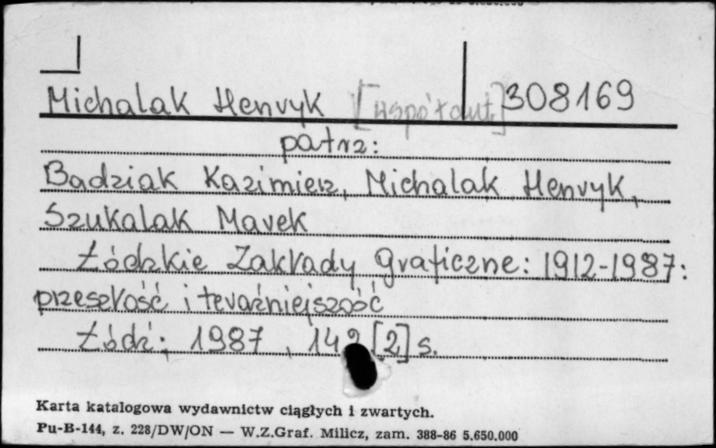 Michalak Henryk [współaut.] 308169
patrz:
Badziak Kazimierz, Michalak Henryk,
Szukalak Marek
Łódzkie Zakłady Graficzne: 1912-1987:
przeszłość i teraźniejszość
Łódź; 1987, 142 [2] s.
Karta katalogowa wydawnictw ciągłych i zwartych.
Pu-B-144, z. 228/DW/ON — W.Z.Graf. Milicz, zam. 388-86 5.650.000